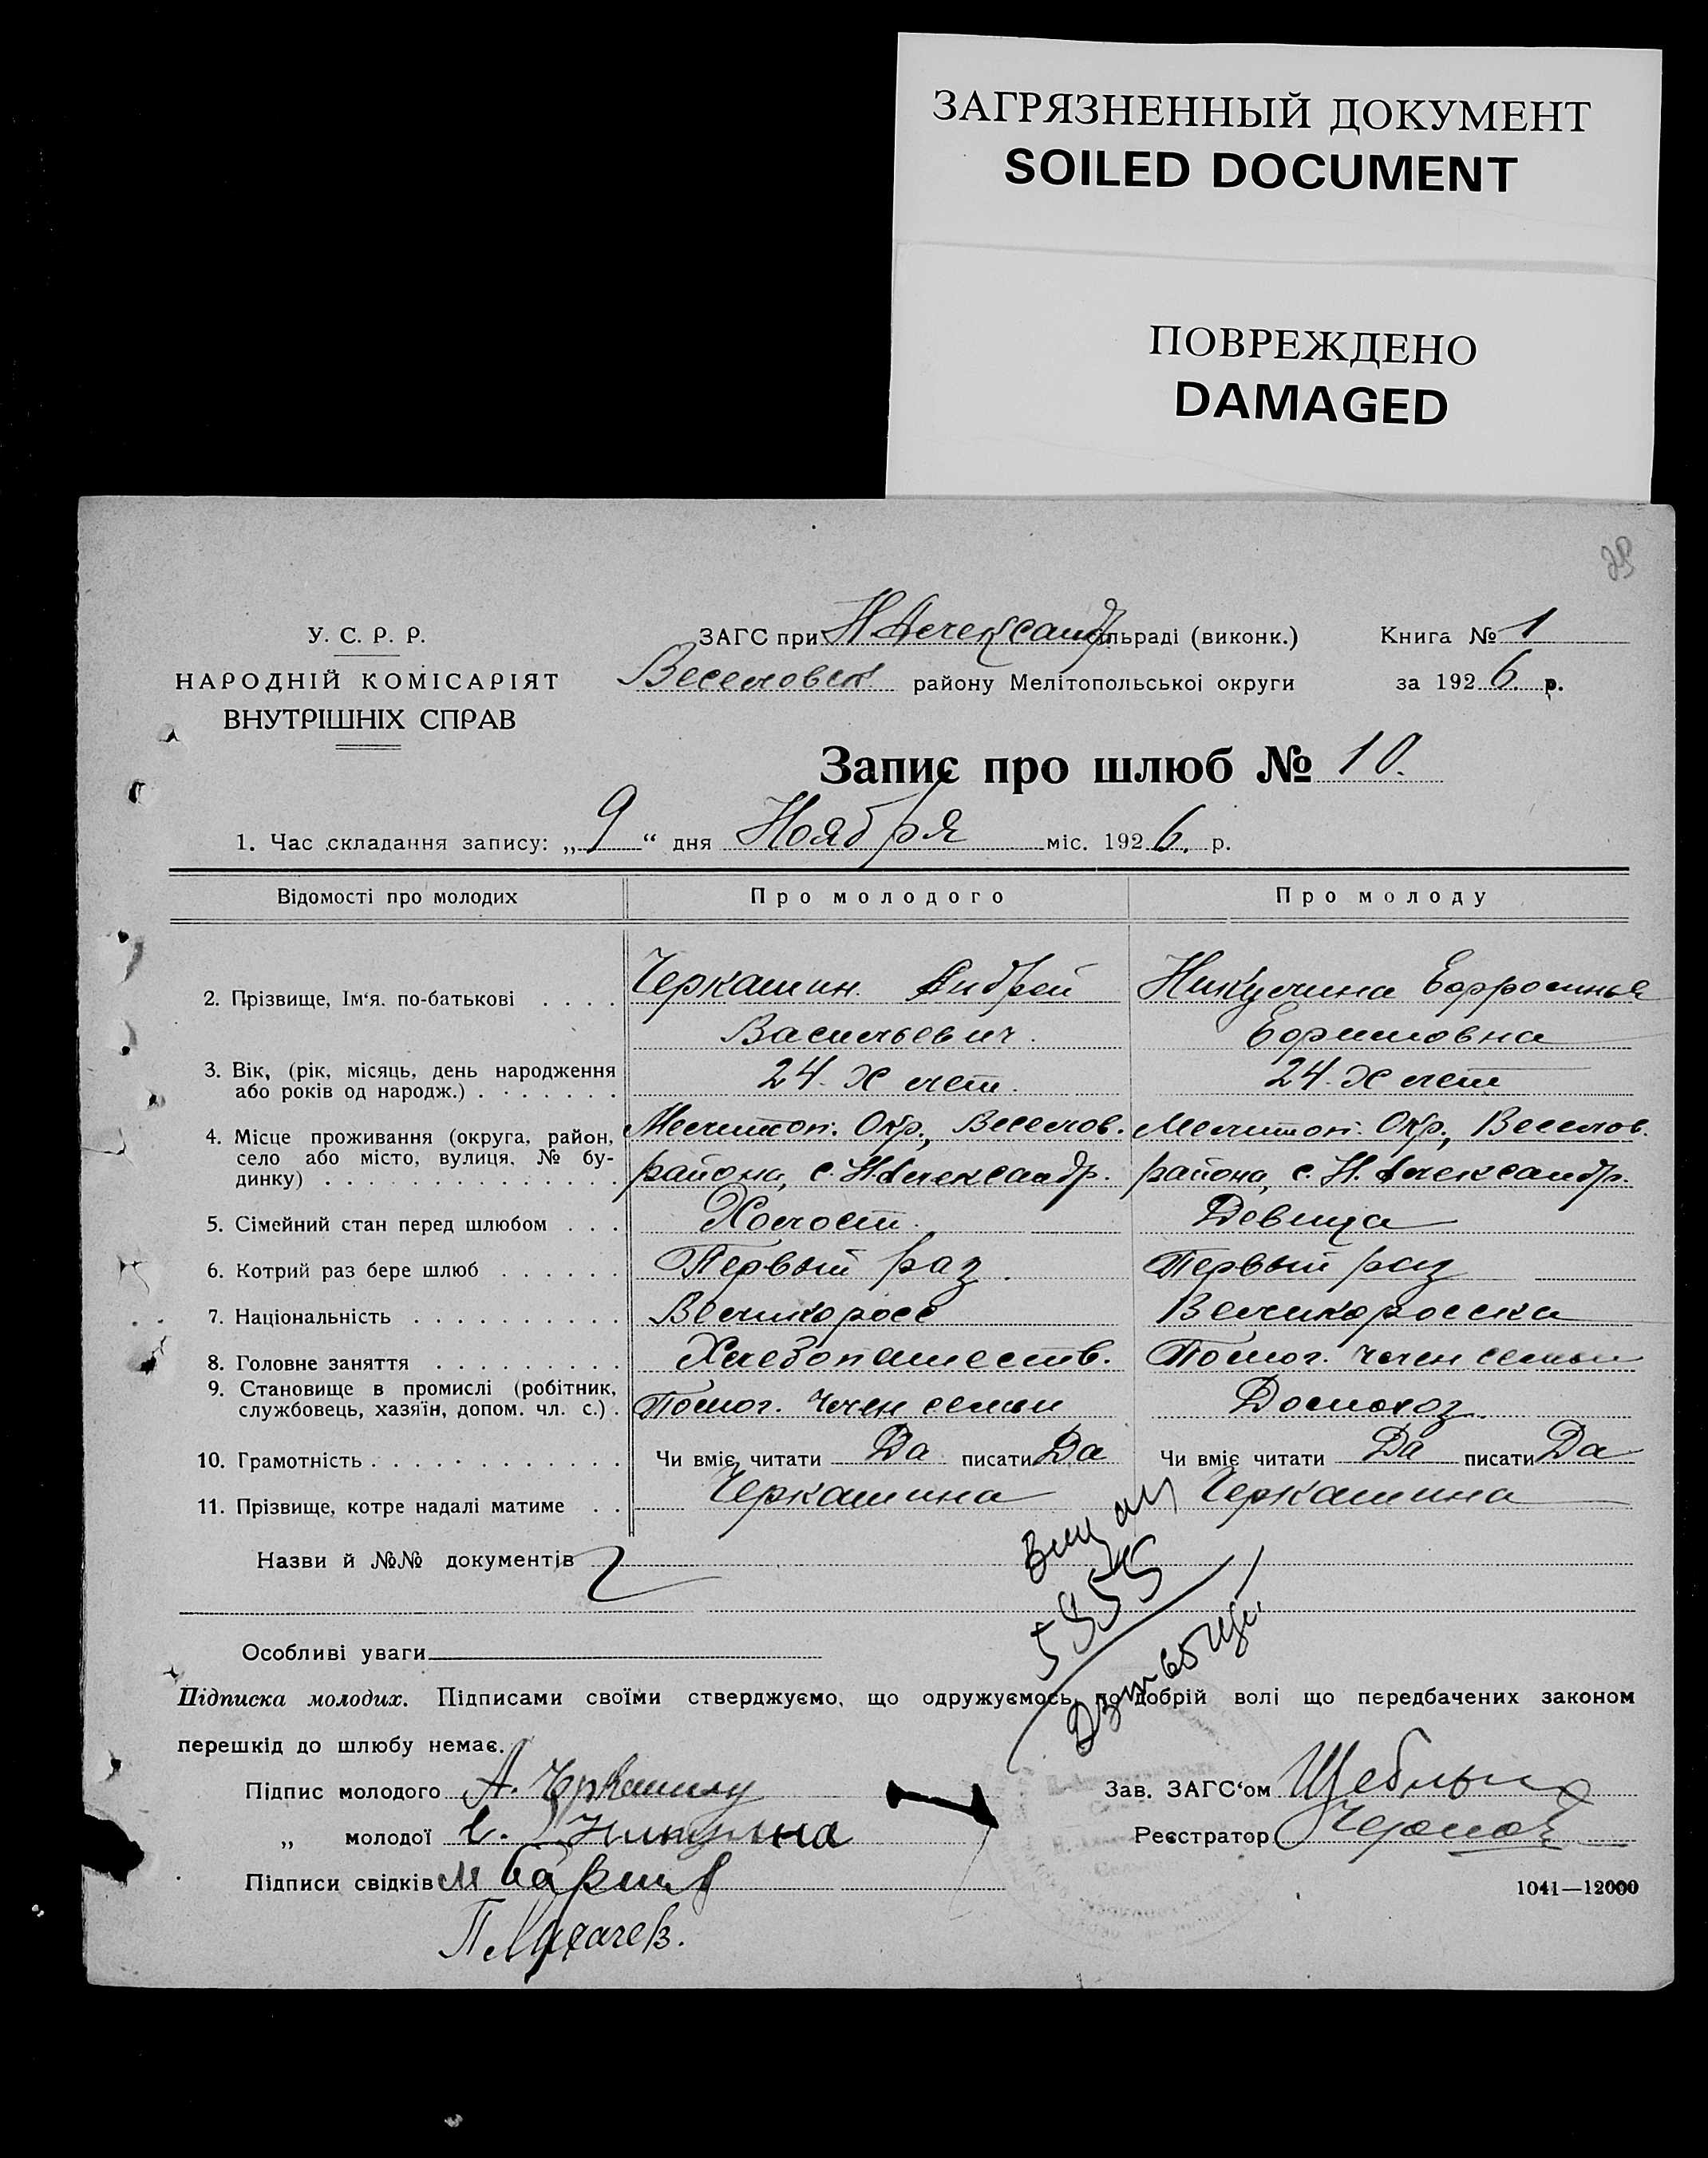 ЗАГРЯЗНЕННЫЙ ДОКУМЕНТ
SOILED DOCUMENT
ПОВРЕЖДЕНО
DAMAGED
У. С. Р. Р.
НАРОДНІЙ КОМІСАРІЯТ
ВНУТРІШНІХ СПРАВ
ЗАГС при Н Александр льраді (виконк.) Книга № 1
Веселовск району Мелітопольської округи за 1926. р.
Запис про шлюб № 10.
1. Час складання запису: „ 9 “ дня Ноября міс. 1926. р.
Відомості про молодих Про молодого Про молоду
2. Прізвище, Ім‘я. по-батькові . . . . Черкашин. Андрей Никулина Ефросинья
Васильевич. Ефимовна
3. Вік, (рік, місяць, день народження
або років од народж.) . . . . . . . 24-х лет. 24-х лет
4. Місце проживання (округа, район, Мелитоп. Окр., Веселов. Мелитоп. Окр., Веселов.
село або місто, вулиця, № бу-
динку) . . . . . . . . . . . . . . района, с. Н Александр. района, с. Н. Александр.
5. Сімейний стан перед шлюбом . . . Холост. Девица
6. Котрий раз бере шлюб . . . . . . Первый раз. Первый раз
7. Національність . . . . . . . . . . Великоросс Великоросска
8. Головне заняття . . . . . . . . . Хлебопашеств. Помог. член семьи
9. Становище в промислі (робітник,
службовець, хазяїн, допом. чл. с.) . Помог. член семьи Домохоз.
10. Грамотність . . . . . . . . . . . . Чи вміє читати Да писати Да Чи вміє читати Да писати Да
11. Прізвище, котре надалі матиме . . Черкашина Черкашина
Назви й №№ документів
Особливі уваги
Підписка молодих. Підписами своїми стверджуємо, що одружуємось по добрій волі що передбачених законом
перешкід до шлюбу немає.
Підпис молодого А. Черкашин Зав. ЗАГС‘ом
„ молодої Е. Никулина Реєстратор
Підписи свідків М
П
1041—12000